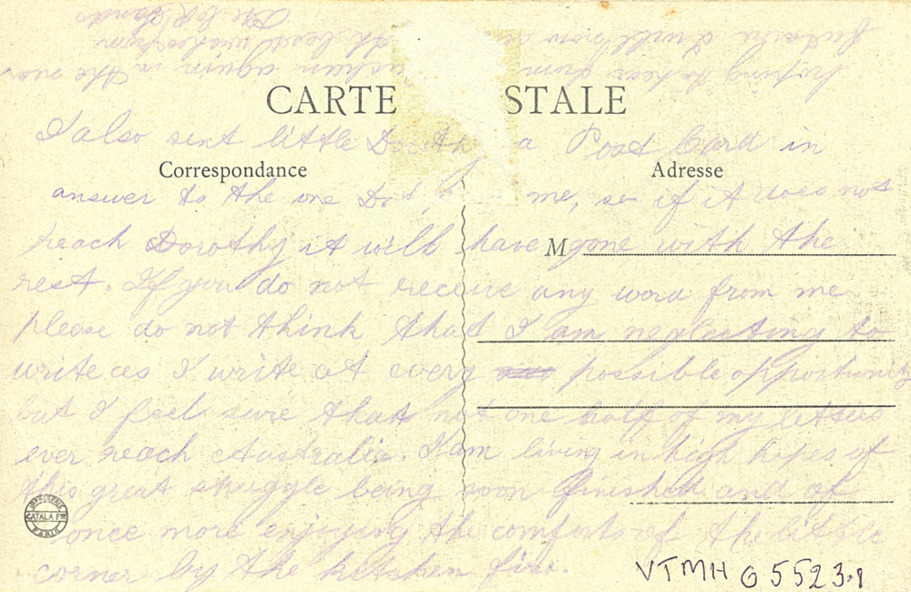 CARTE STALE
I also sent little Doroth a Post Card in
Correspondance Adresse
answer to the one Dot, me, so if it does not
reach Dorothy it will have gone with the
M
rest. If you do not receive any word from me
please do not think that I am neglecting to
write as I write at every possible opportunity
but I feel sure that not one half of my letters
ever reach Australia. I am living in high hopes of
this great struggle being soon finished and of
once more enjoying the comforts of the little
corner by the kitchen fire.
CATALA
PARIS
VTMH G 5523.1
hoping to hear from again in the near
future I will now best wishes from